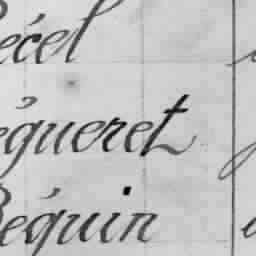 Bécel
Bégueret
Béquin